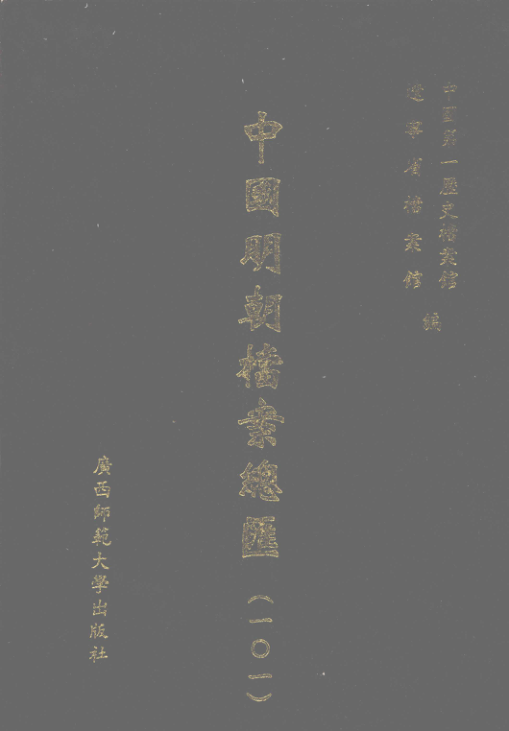 中國第一歷史檔案館
遼寧省檔案館
編
中國明朝檔案總匯(一〇一)
廣西師範大學出版社